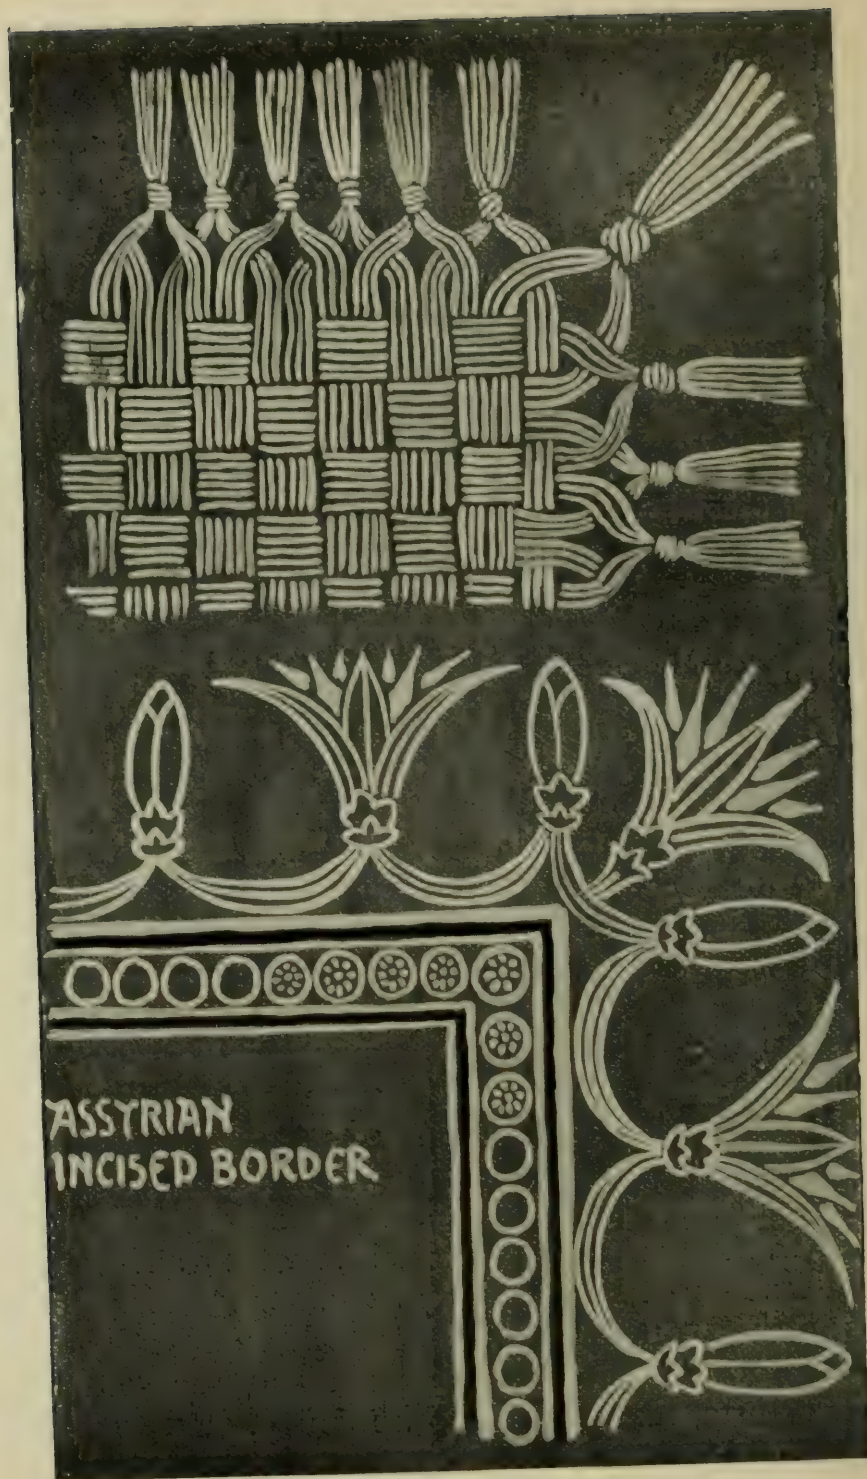 ASSYRIAN
INCISED BORDER